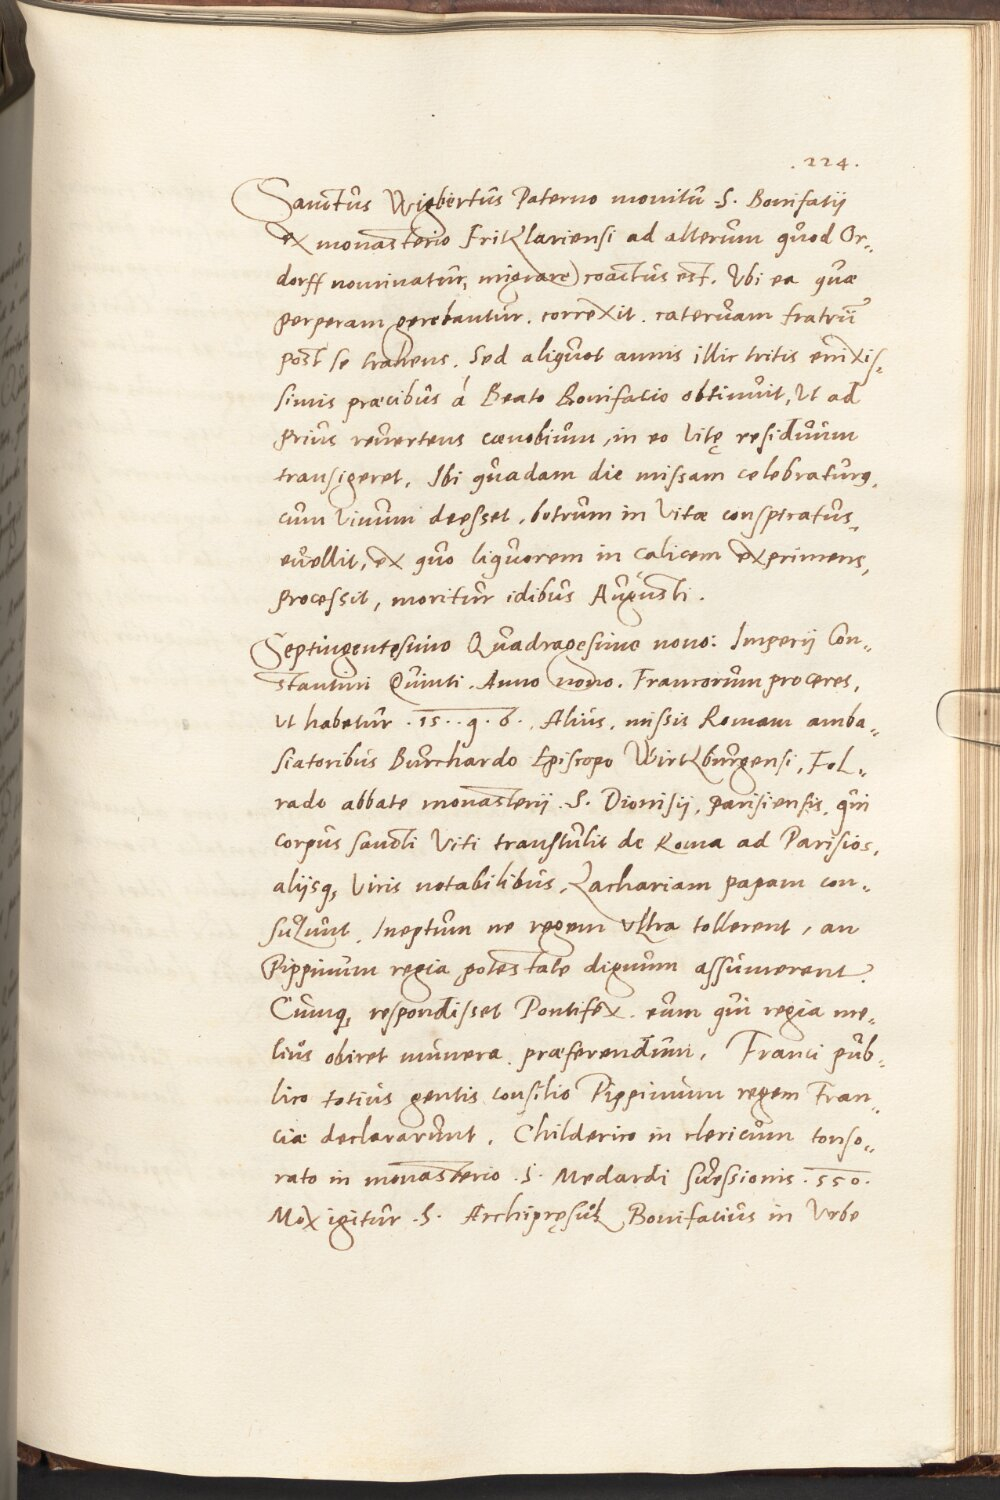 .224.
Sanctus Wigbertus Paterno monitu .S. Bonifatij
ex monasterio Fritzlariensi ad alterum quod Or„
dorff nominatur, migrare coactus est. Vbi ea quæ
perperam gerebantur. correxit. cateruam fratrū
post se trahens. Sed aliquot annis illic tritis enixis„
simis præcibus á Beato Bonifatio obtinuit, Vt ad
prius reuertens cœnobium, in eo Vitę residuum
transigeret. Ibi quadam die missam celebraturꝯ,
cum Vinum deesset, botrum in Vitæ conspicatus„
euellit, ex quo liquorem in calicem exprimens,
processit, moritur idibus Augusti.
Septingentesimo Quadragesimo nono: Imperij Con„
stantini Quinti. Anno nono. Francorum proceres,
Vt habetur .15..q.6., Alius, missis Romam amba„
siatoribus Burchardo Episcopo Wirtzburgensi, Fol„
rado abbate monasterij .S. Dionisij, parisiensis, qui
corpus sancti Viti transtulit de Roma ad Parisios,
alijsq, Viris notabilibus, Zachariam papam con„
sulunt, Ineptum ne regem Vltra tollerent, an
Pippinum regia potestate dignum assumerent?
Cumq, respondisset Pontifex. eum qui regia me„
lius obiret munera præferendum, Franci pub„
lico totius gentis consilio Pippinum regem Fran„
ciæ declararunt, Childerico in clericum tonso„
rato in monasterio .S. Medardi suessionis .550.
Mox igitur .S. Archipręsul Bonifatius in Vrbe